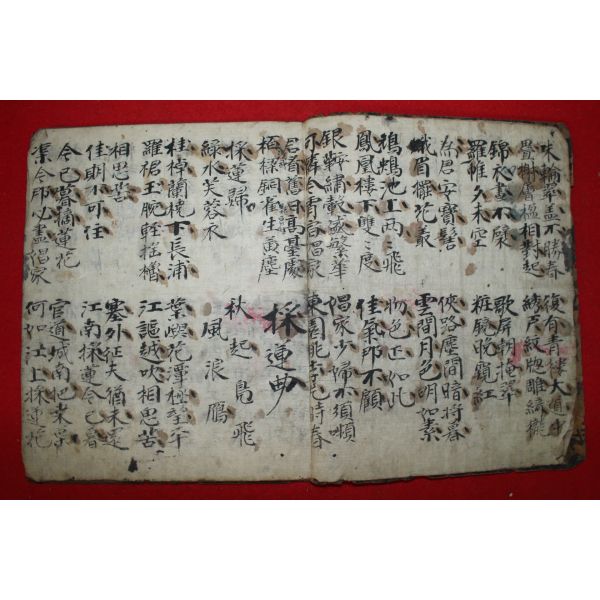 朱輪翠盖不勝春
疊榭曾楹相對起
復有青樓大道中
綉戶紋牕雕綺櫳
錦衣晝不襞
羅帷夕未空
歌屏朝掩翠
粧鏡晚窺紅
為君安寶髻
蛾眉罷花叢
俠路塵間暗將暮
雲間月色明如素
鴛鴦池上兩ミ飛
鳳凰樓下雙ミ度
物色正如此
佳氣那不顧
銀鞍繡轂盛繁華
可憐今宵宿娼家
倡家少婦不須嚬
東園桃李片時春
君看舊日高基處
栢樑銅雀生黃塵
採蓮曲
採蓮歸
綠水芙蓉衣
秋起鳧飛
風浪鴈
桂棹蘭橈下長浦
羅裙玉腕輕搖櫓
葉嶼花潭極望平
江謳越吹相思苦
相思苦
佳期不可住
塞外征夫猶未還
江南採蓮今已暮
今已暮摘蓮花
渠今那必盡倡家
官道城南把桑葉
何如江上採蓮花